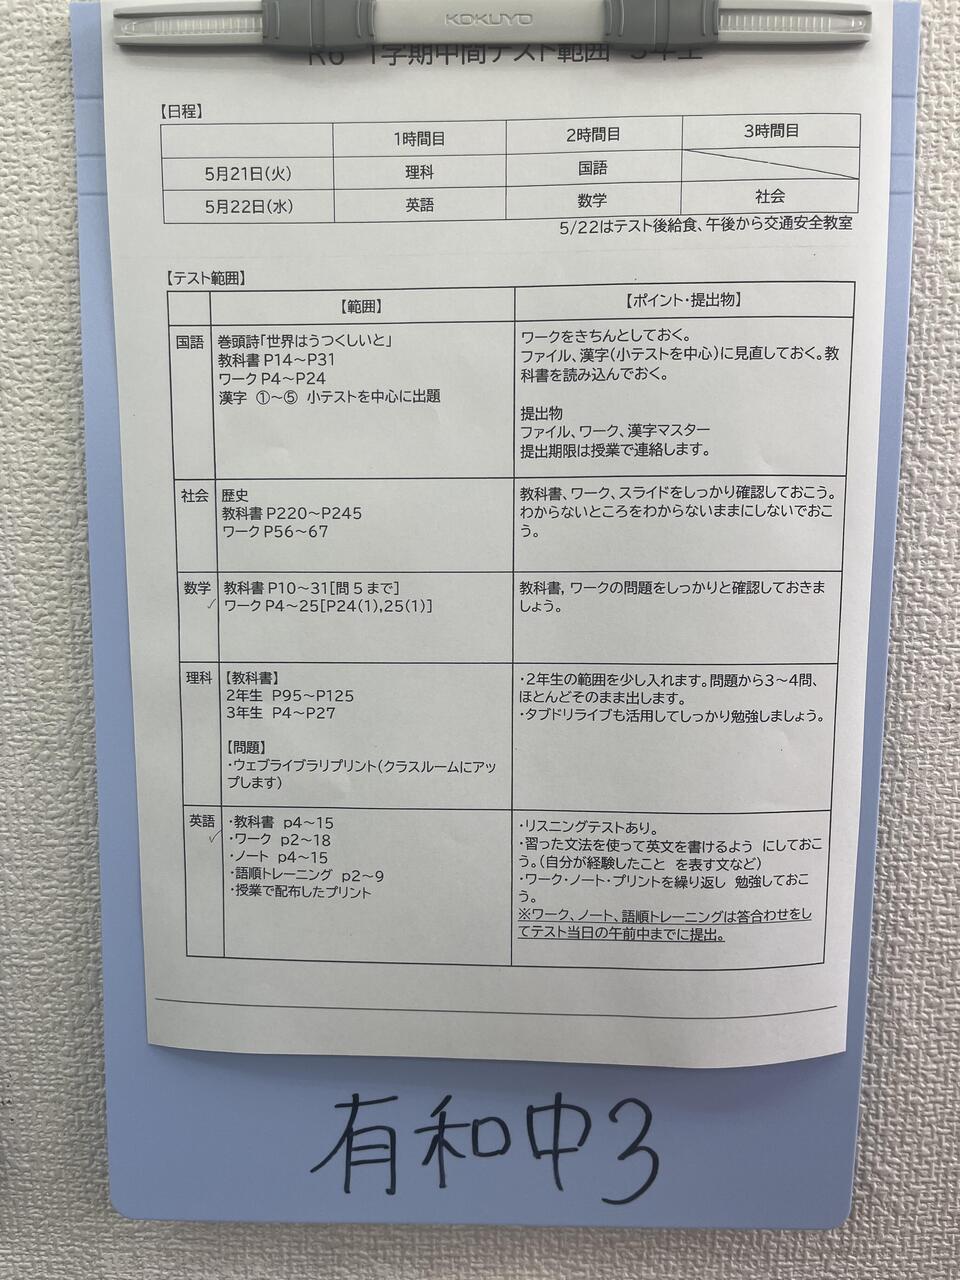 KOKUYO
R6 1学期中間テスト範囲 3年生
【日程】
1時間目 2時間目 3時間目
5月21日(火) 理科 国語
5月22日(水) 英語 数学 社会
5/22はテスト後給食、午後から交通安全教室
【テスト範囲】
【範囲】 【ポイント・提出物】
国語
巻頭詩「世界はうつくしいと」
教科書 P14～P31
ワーク P4～P24
漢字 ①～⑤ 小テストを中心に出題
ワークをきちんとしておく。
ファイル、漢字(小テストを中心)に見直しておく。教
科書を読み込んでおく。
提出物
ファイル、ワーク、漢字マスター
提出期限は授業で連絡します。
社会
歴史
教科書 P220～P245
ワーク P56～67
教科書、ワーク、スライドをしっかり確認しておこう。
わからないところをわからないままにしないでおこ
う。
数学
教科書 P10～31[問 5 まで]
ワーク P4～25[P24(1),25(1)]
教科書，ワークの問題をしっかりと確認しておきま
しょう。
理科
【教科書】
2年生 P95～P125
3年生 P4～P27
【問題】
・ウェブライブラリプリント(クラスルームにアッ
プします)
・2年生の範囲を少し入れます。問題から3～4問、
ほとんどそのまま出します。
・タブドリライブも活用してしっかり勉強しましょう。
英語
・教科書 p4～15
・ワーク p2～18
・ノート p4～15
・語順トレーニング p2～9
・授業で配布したプリント
・リスニングテストあり。
・習った文法を使って英文を書けるよう にしておこ
う。(自分が経験したこと を表す文など)
・ワーク・ノート・プリントを繰り返し 勉強しておこ
う。
※ワーク、ノート、語順トレーニングは答合わせをし
てテスト当日の午前中までに提出。
有和中3